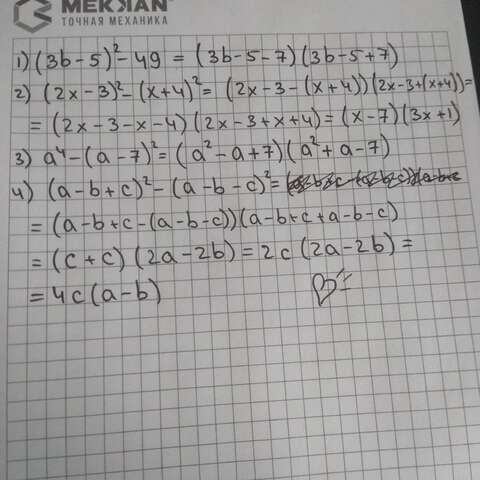 MEKKAN
ТОЧНАЯ МЕХАНИКА
1) (3b-5)²-49 = (3b-5-7)(3b-5+7)
2) (2x-3)²-(x+4)² = (2x-3-(x+4))(2x-3+(x+4))=
= (2x-3-x-4)(2x-3+x+4) = (x-7)(3x+1)
3) a⁴-(a-7)² = (a²-a+7)(a²+a-7)
4) (a-b+c)²-(a-b-c)² =
= (a-b+c-(a-b-c))(a-b+c+a-b-c)
= (c+c)(2a-2b) = 2c(2a-2b) =
= 4c(a-b)